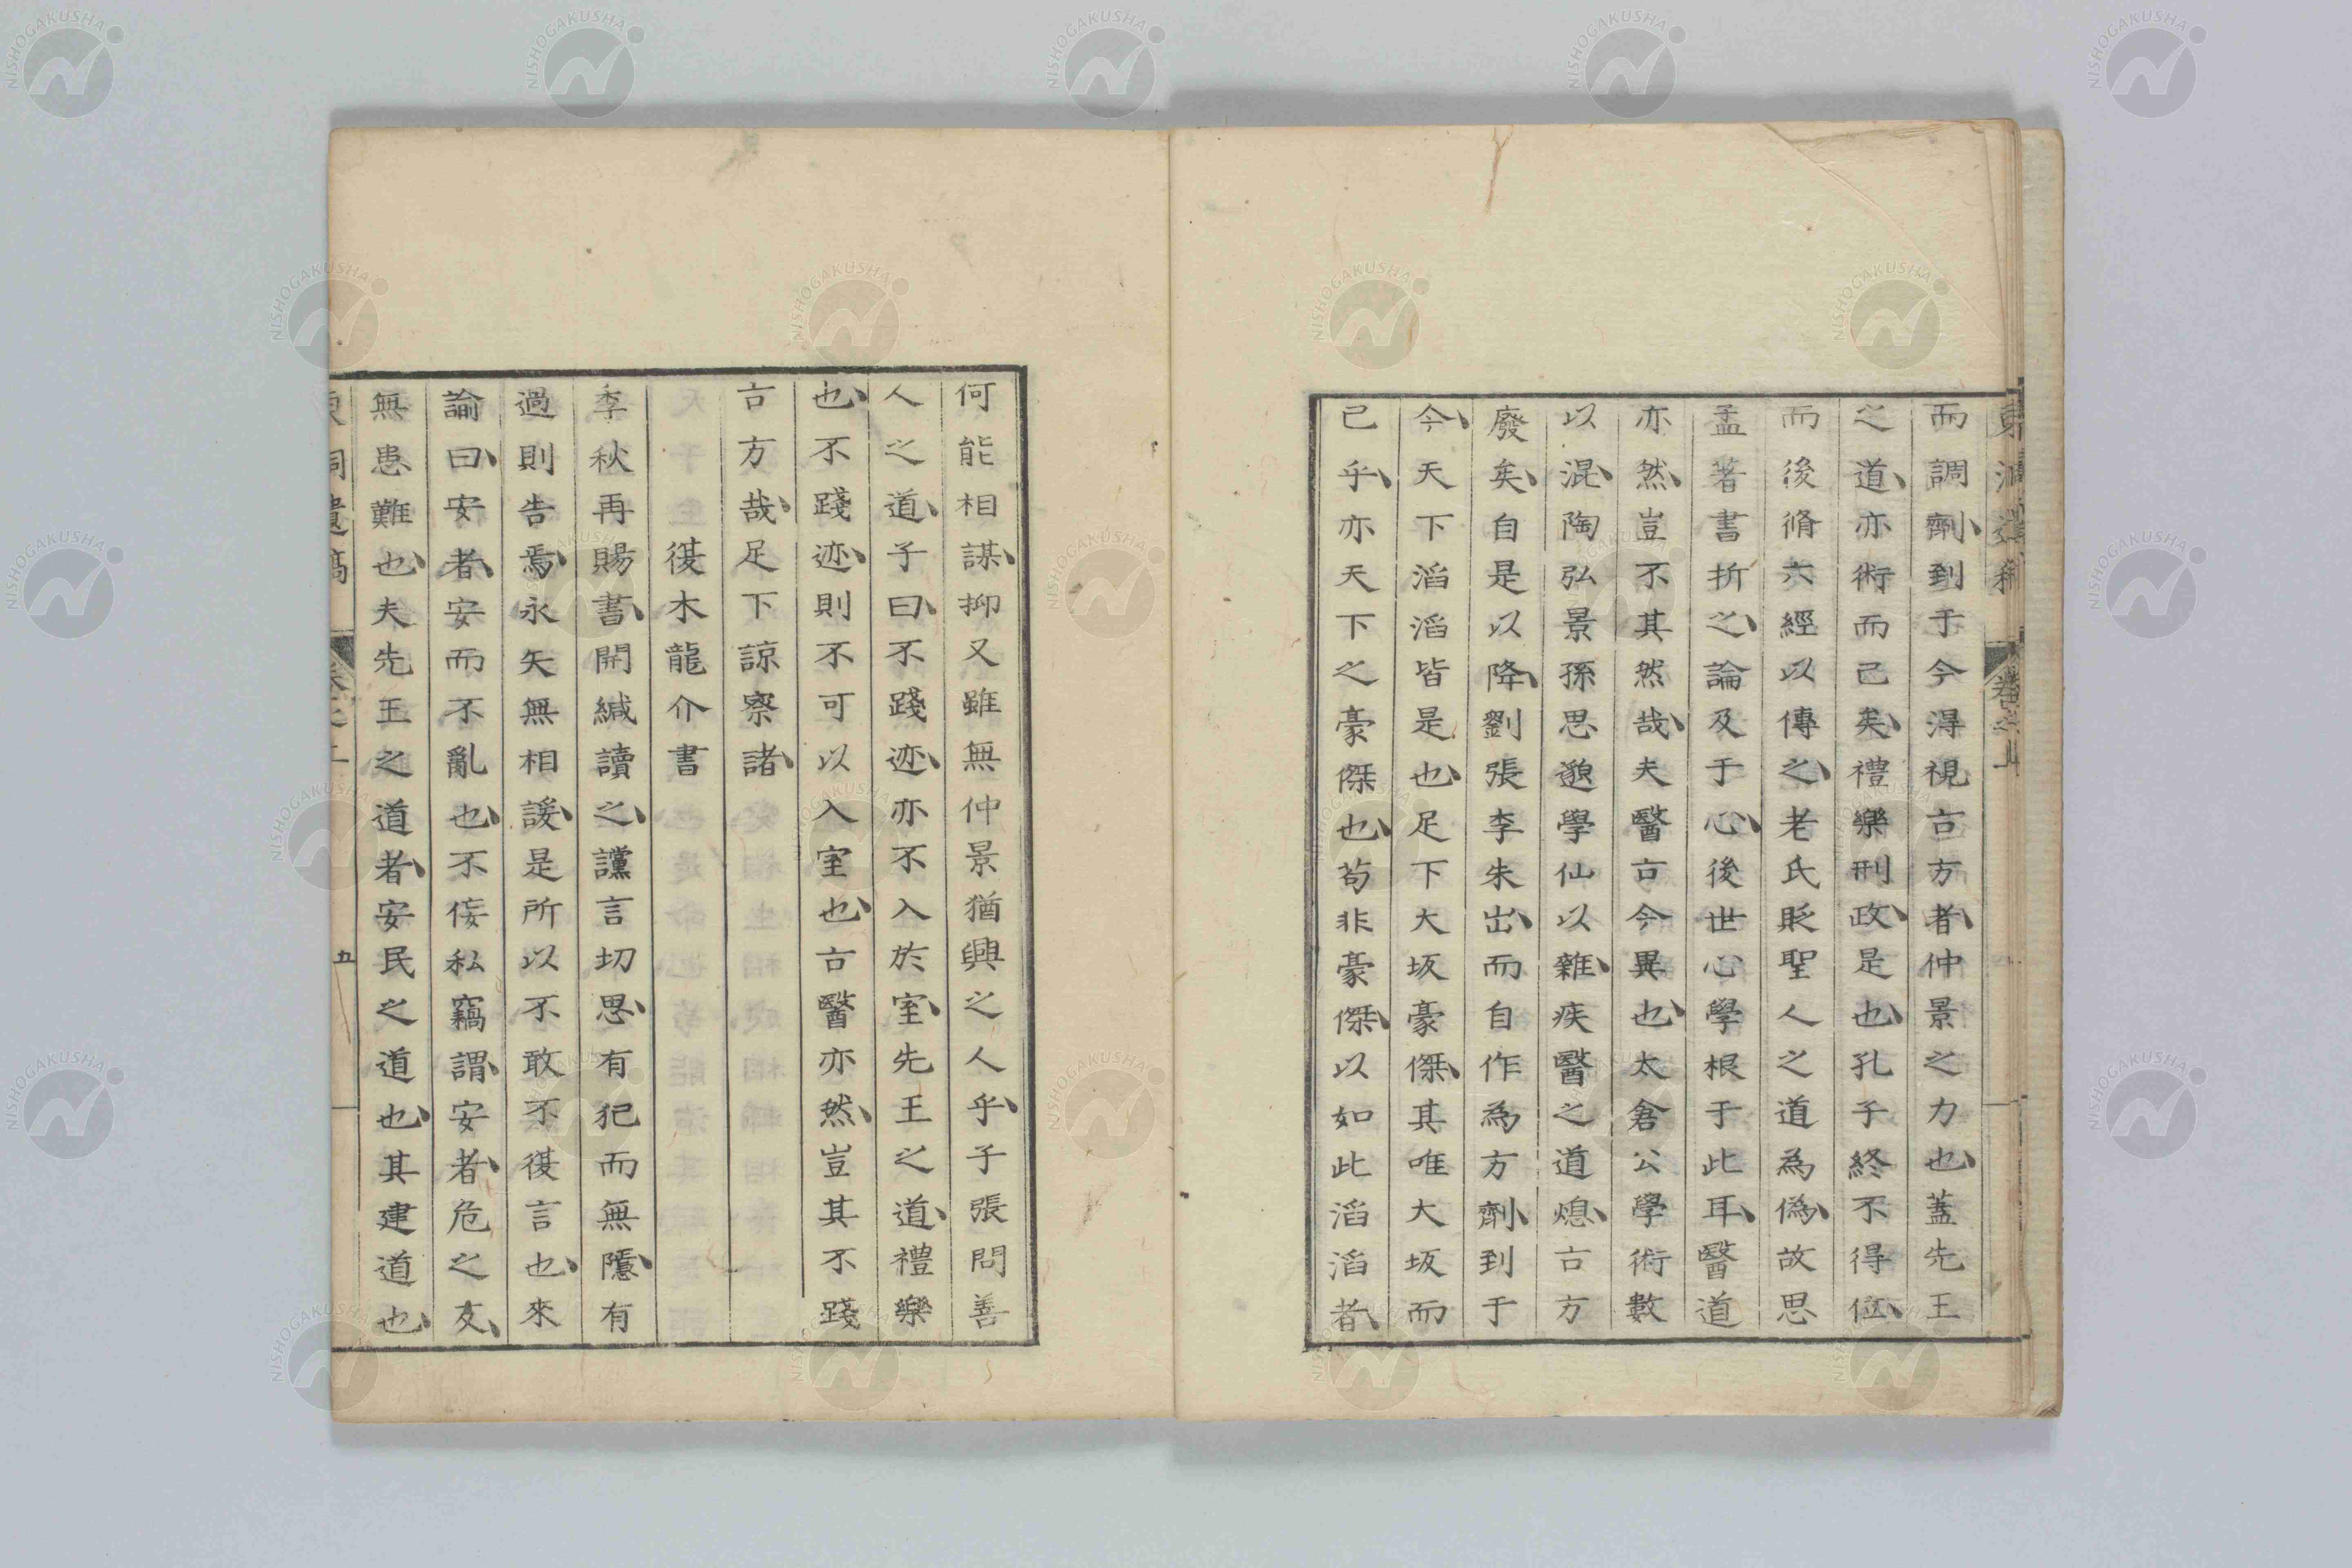 東洞遺稿 卷之上
而調劑、到于今得視古方者、仲景之力也、蓋先王
之道、亦術而已矣、禮樂刑政、是也、孔子終不得位、
而後脩六經以傳之、老氏貶聖人之道為偽、故思
孟著書折之、論及于心、後世心學根于此耳、醫道
亦然、豈不其然哉、夫醫古今異也、太倉公學術數
以混、陶弘景孫思邈學仙以雜、疾醫之道熄、古方
廢矣、自是以降、劉張李朱出、而自作為方劑、到于
今、天下滔滔皆是也、足下大坂豪傑、其唯大坂而
已乎、亦天下之豪傑也、苟非豪傑、以如此滔滔者、
何能相謀、抑又雖無仲景猶興之人乎、子張問善
人之道、子曰、不踐迹、亦不入於室、先王之道、禮樂
也、不踐迹、則不可以入室也、古醫亦然、豈其不踐
古方哉、足下諒察諸、
復木龍介書
季秋再賜書、開緘讀之、讜言切思、有犯而無隱、有
過則告焉、永矢無相諼、是所以不敢不復言也、來
諭曰、安者、安而不亂也、不佞私竊謂、安者、危之友、
無患難也、夫先王之道者、安民之道也、其建道也、
東洞遺稿 卷之上 五
NISHOGAKUSHA